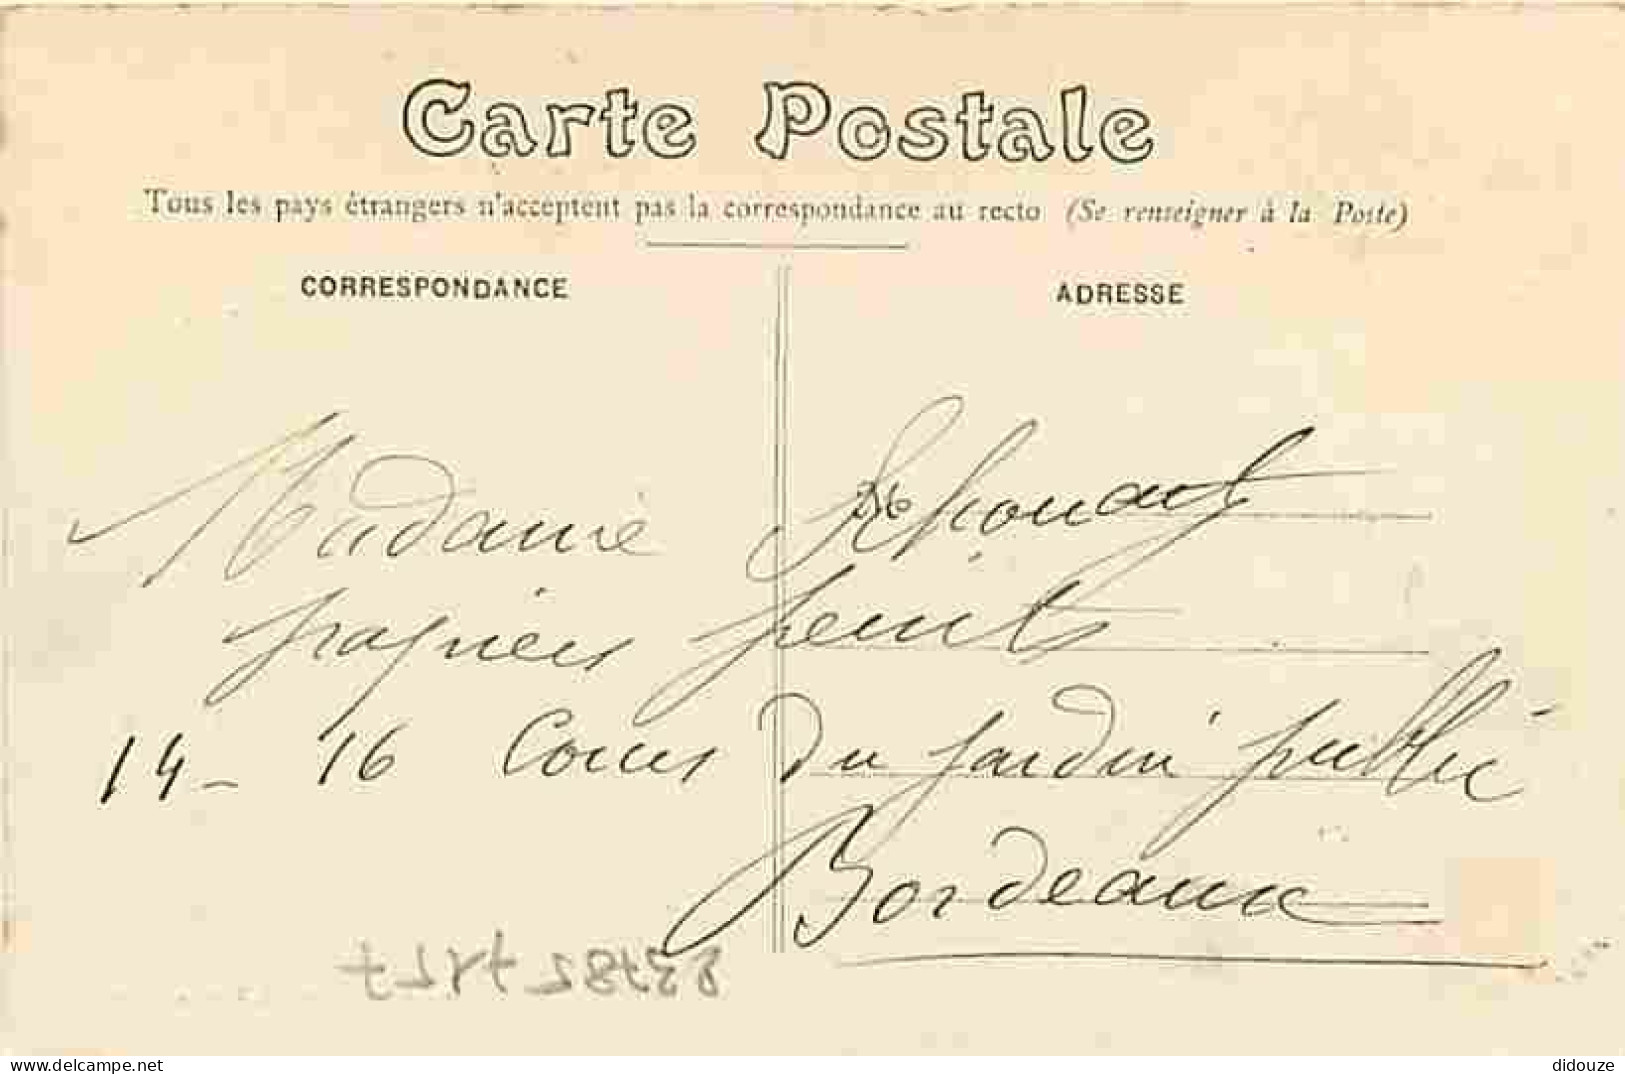 Carte Postale
Tous les pays étrangers n'acceptent pas la correspondance au recto (Se renseigner à la Poste)
CORRESPONDANCE
ADRESSE
Madame
papiers peints
14 - 16 Cours du Jardin public
Bordeaux
delcampe.net
didouze